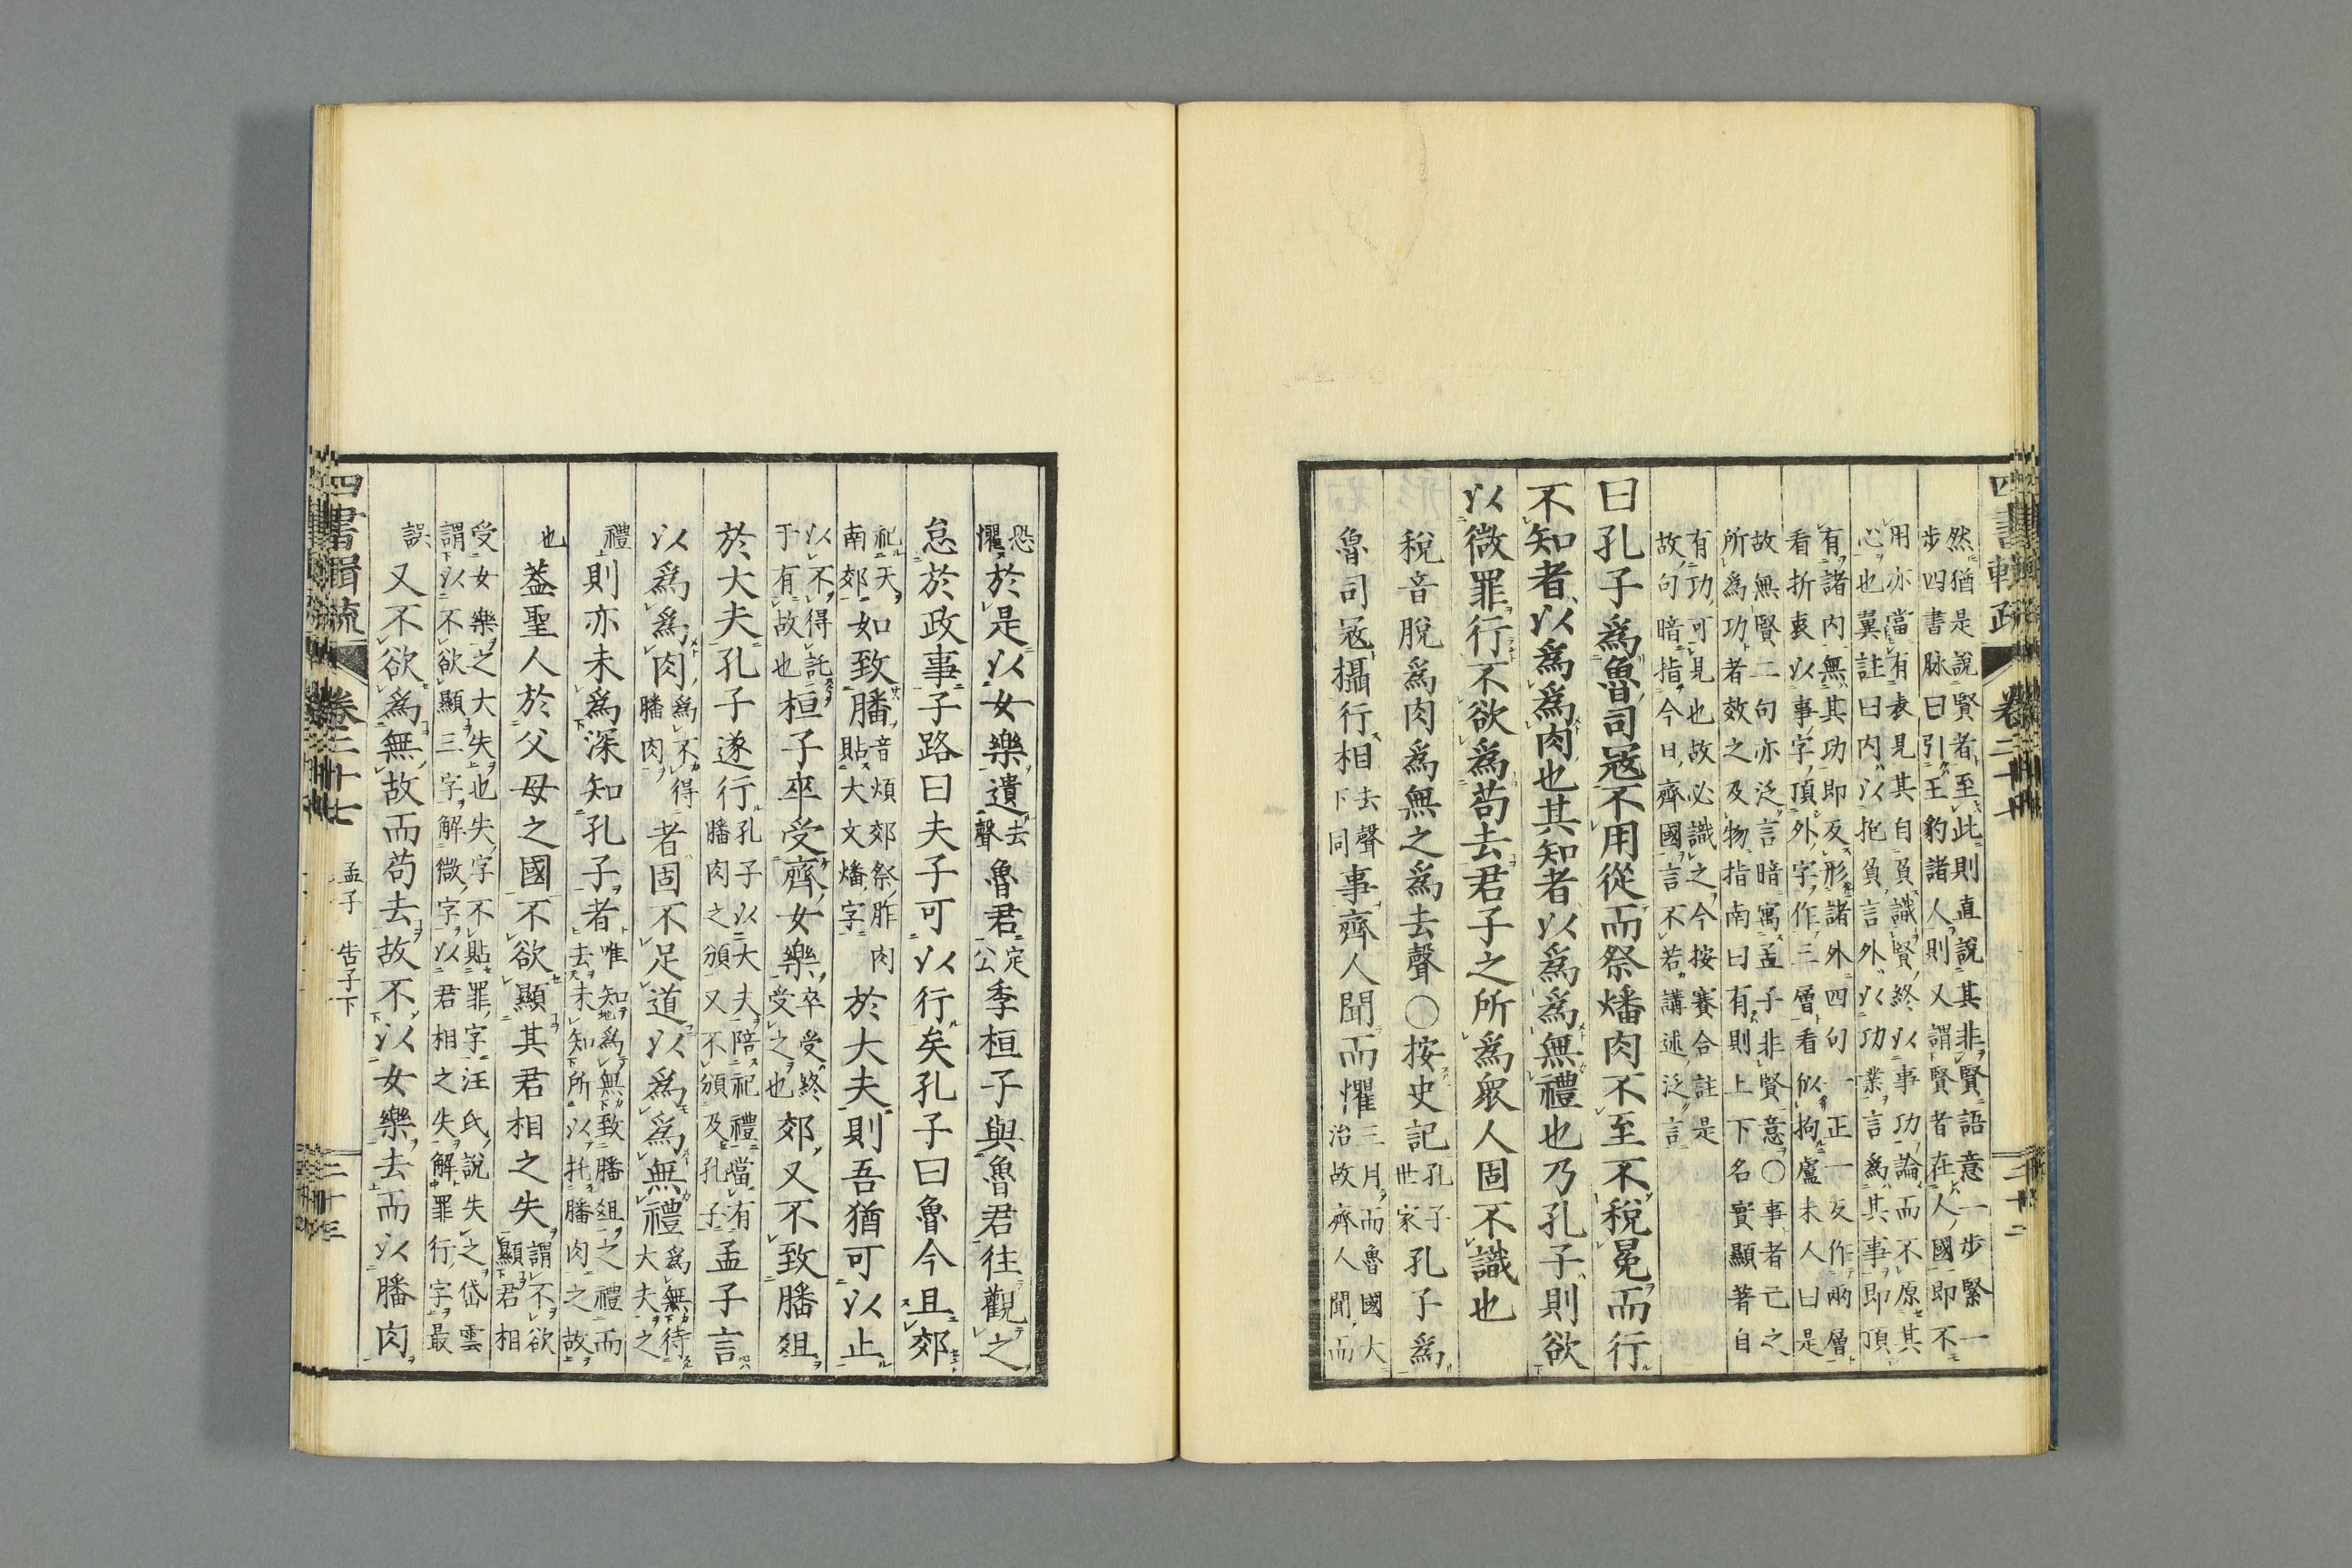 然猶是說賢者至此則直說其非賢語意一步緊一
步四書脉曰引王豹諸人則又謂賢者在人國即不
用亦當有表見其自負識賢終以事功論而不原其
心也翼註曰内以抱負言外以功業言爲其事即頂
有諸内無其功即反形諸外四句一正一反作兩層
看折衷以事字頂外字作三層看似拘盧未人曰是
故無賢二句亦泛言暗寓孟子非賢意〇事者已之
所爲功者效之及物指南曰有則上下名實顯著自
有功可見也故必識之今按賽合註是
故句暗指今日齊國言不若講述泛言
曰孔子爲魯司寇不用從而祭燔肉不至不稅冕而行
不知者以爲爲肉也其知者以爲爲無禮也乃孔子則欲
以微罪行不欲爲苟去君子之所爲衆人固不識也
稅音脫爲肉爲無之爲去聲〇按史記孔子世家孔子爲
魯司寇攝行相去聲下同事齊人聞而懼三月而魯國大治故齊人聞而
恐懼於是以女樂遺去聲魯君定公季桓子與魯君往觀之
怠於政事子路曰夫子可以行矣孔子曰魯今且郊
祀天南郊如致膰音煩郊祭胙肉貼大文燔字於大夫則吾猶可以止
以不得託于有故也桓子卒受齊女樂卒受終受之也郊又不致膰俎
於大夫孔子遂行孔子以大夫陪祀禮當有膰肉之頒又不頒及孔子孟子言
以爲爲肉爲不得膰肉者固不足道以爲爲無禮爲無待大夫之
禮則亦未爲深知孔子者唯知爲無致膰俎之禮而去未知所以托膰肉之故
也蓋聖人於父母之國不欲顯其君相之失謂不欲顯君相
受女樂之大失也失字不貼罪字汪氏說失之岱雲
謂以不欲顯三字解微字以君相之失解罪行字最
誤又不欲爲無故而苟去故不以女樂去而以膰肉
四書輯疏 卷二十七 孟子 告子下 二十三